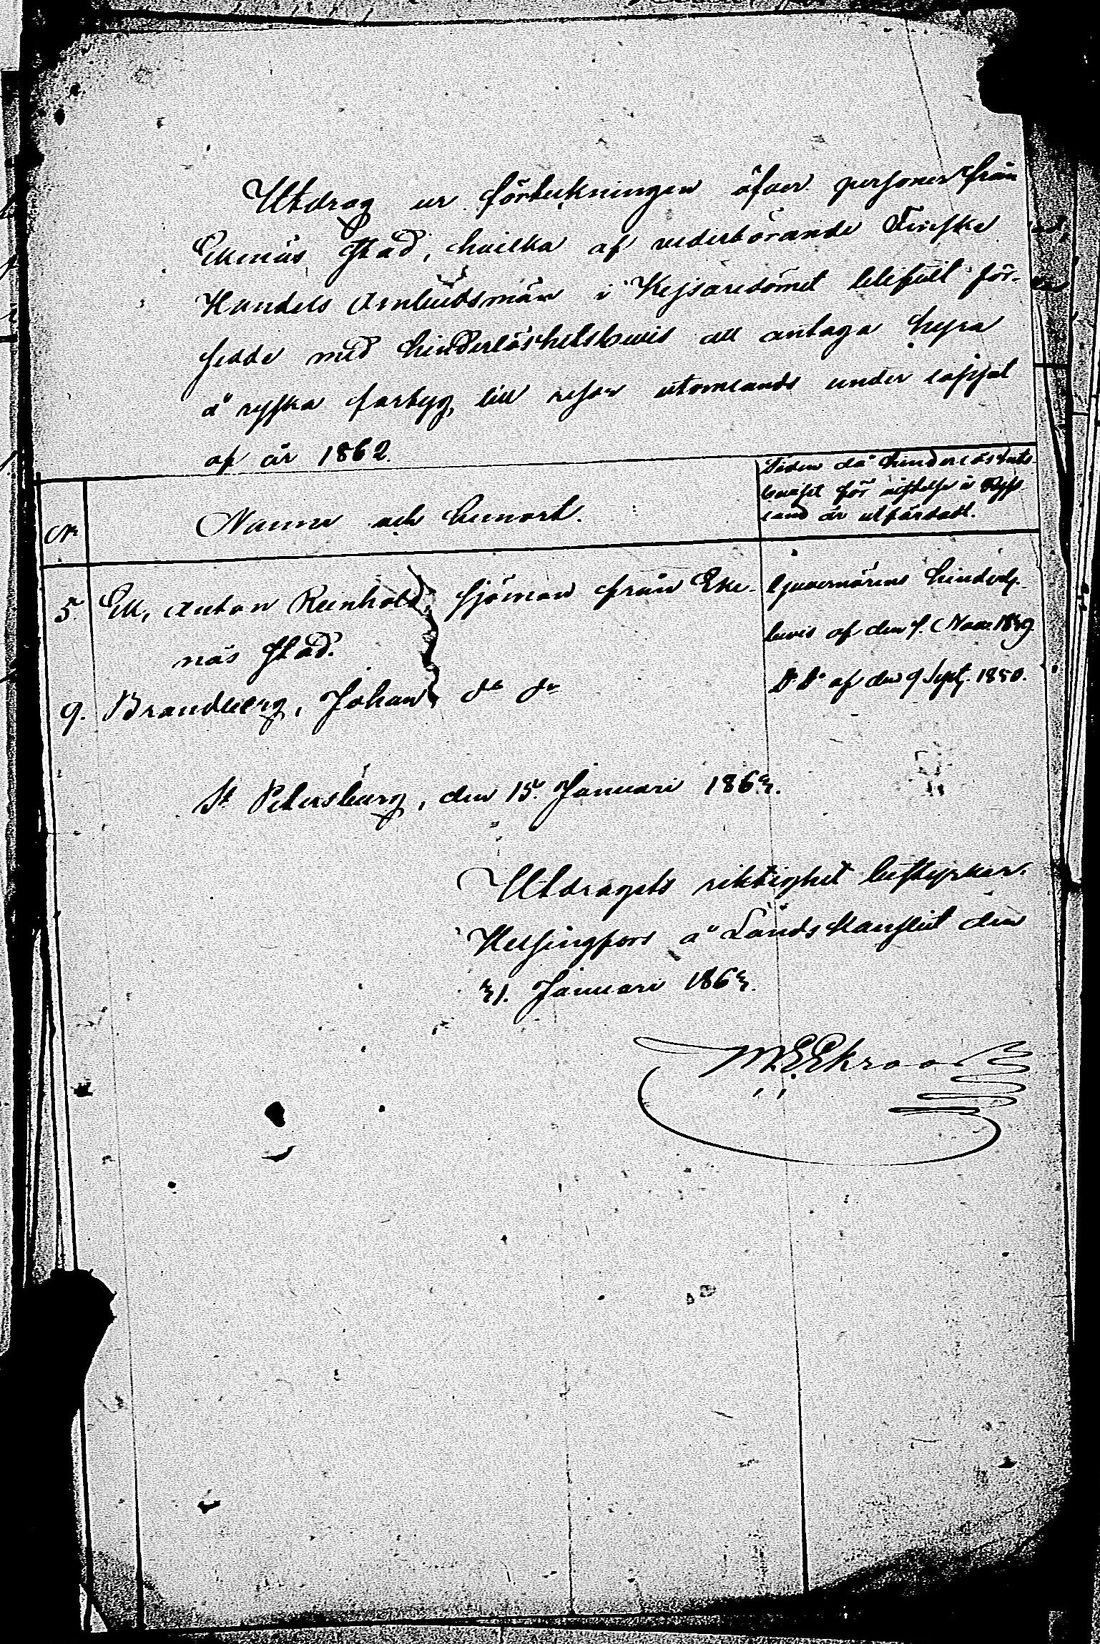 Utdrag ur förteckningen öfver personer från
Ekenäs stad, hvilka af vederbörande Finska
Handels Ambudsmän i Kejsaredömet blifvit för-
sedde med hinderlöshetsbevis att antaga hyra
å ryska fartyg till resor utomlands under loppet
af år 1862.
Nr
Namn och hemort.
Tiden då hinderlöshets
beviset för vistelse i Ryss
land är utfärdadt.
5. Ek, Anton Reinhold, sjöman från Eke-
näs stad.
Guvernörens hinderlz.
bevis af den 7. Nov. 1859
9. Brandberg, Johan do do
Do Do af den 9 Sept. 1850.
St Petersburg, den 15 Januari 1863.
Utdragets riktighet bestyrker.
Helsingfors å Landskansliet den
31. Januari 1863.